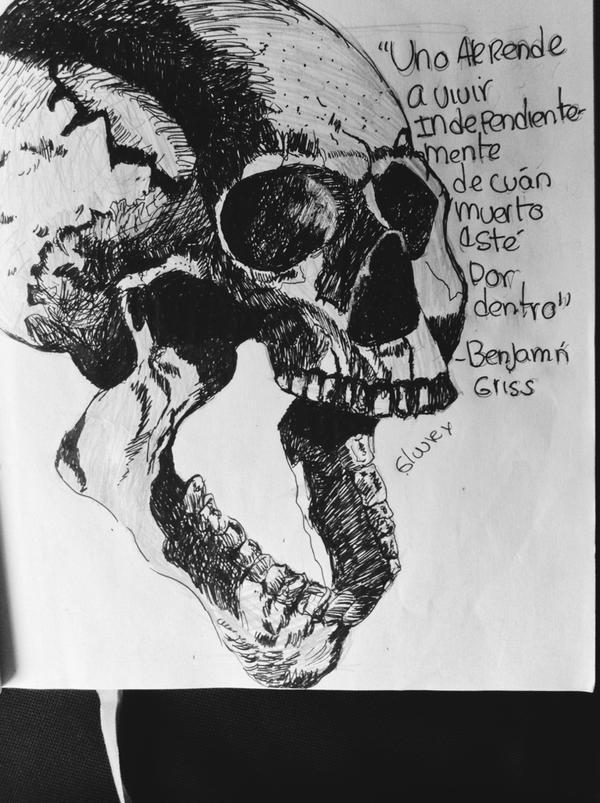 "Uno APRende
a vivir
Independiente-
mente
de cuán
muerto
esté
por
dentro"
-Benjamín
Griss